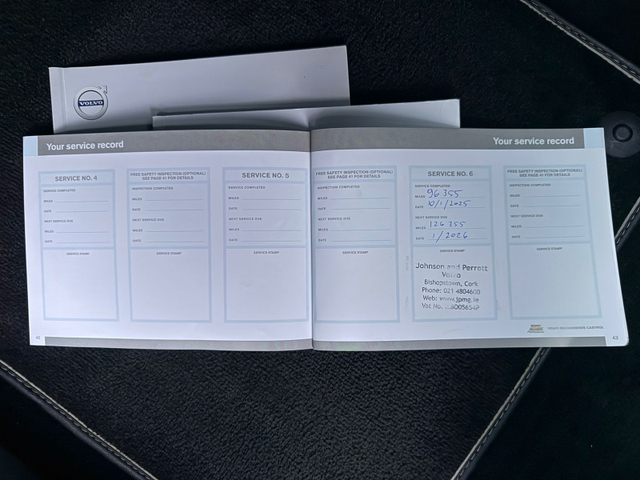 VOLVO
Your service record
Your service record
SERVICE NO. 4
SERVICE COMPLETED
MILES
DATE
NEXT SERVICE DUE
MILES
DATE
SERVICE STAMP
FREE SAFETY INSPECTION (OPTIONAL)
SEE PAGE 41 FOR DETAILS
INSPECTION COMPLETED
MILES
DATE
NEXT SERVICE DUE
MILES
DATE
SERVICE STAMP
SERVICE NO. 5
SERVICE COMPLETED
MILES
DATE
NEXT SERVICE DUE
MILES
DATE
SERVICE STAMP
FREE SAFETY INSPECTION (OPTIONAL)
SEE PAGE 41 FOR DETAILS
INSPECTION COMPLETED
MILES
DATE
NEXT SERVICE DUE
MILES
DATE
SERVICE STAMP
SERVICE NO. 6
SERVICE COMPLETED
MILES 96 355
DATE 10/1/2025
NEXT SERVICE DUE
MILES 126 355
DATE 1/2026
SERVICE STAMP
Johnson and Perrott
Volvo
Bishopstown, Cork
Phone: 021 4804600
Web: www.jpmg.ie
Vat No.
FREE SAFETY INSPECTION (OPTIONAL)
SEE PAGE 41 FOR DETAILS
INSPECTION COMPLETED
MILES
DATE
NEXT SERVICE DUE
MILES
DATE
SERVICE STAMP
42
43